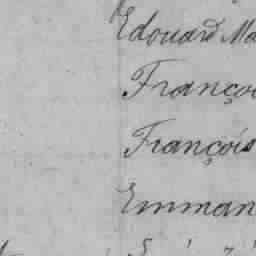 Edouard Ma
Françoi
François
Emman